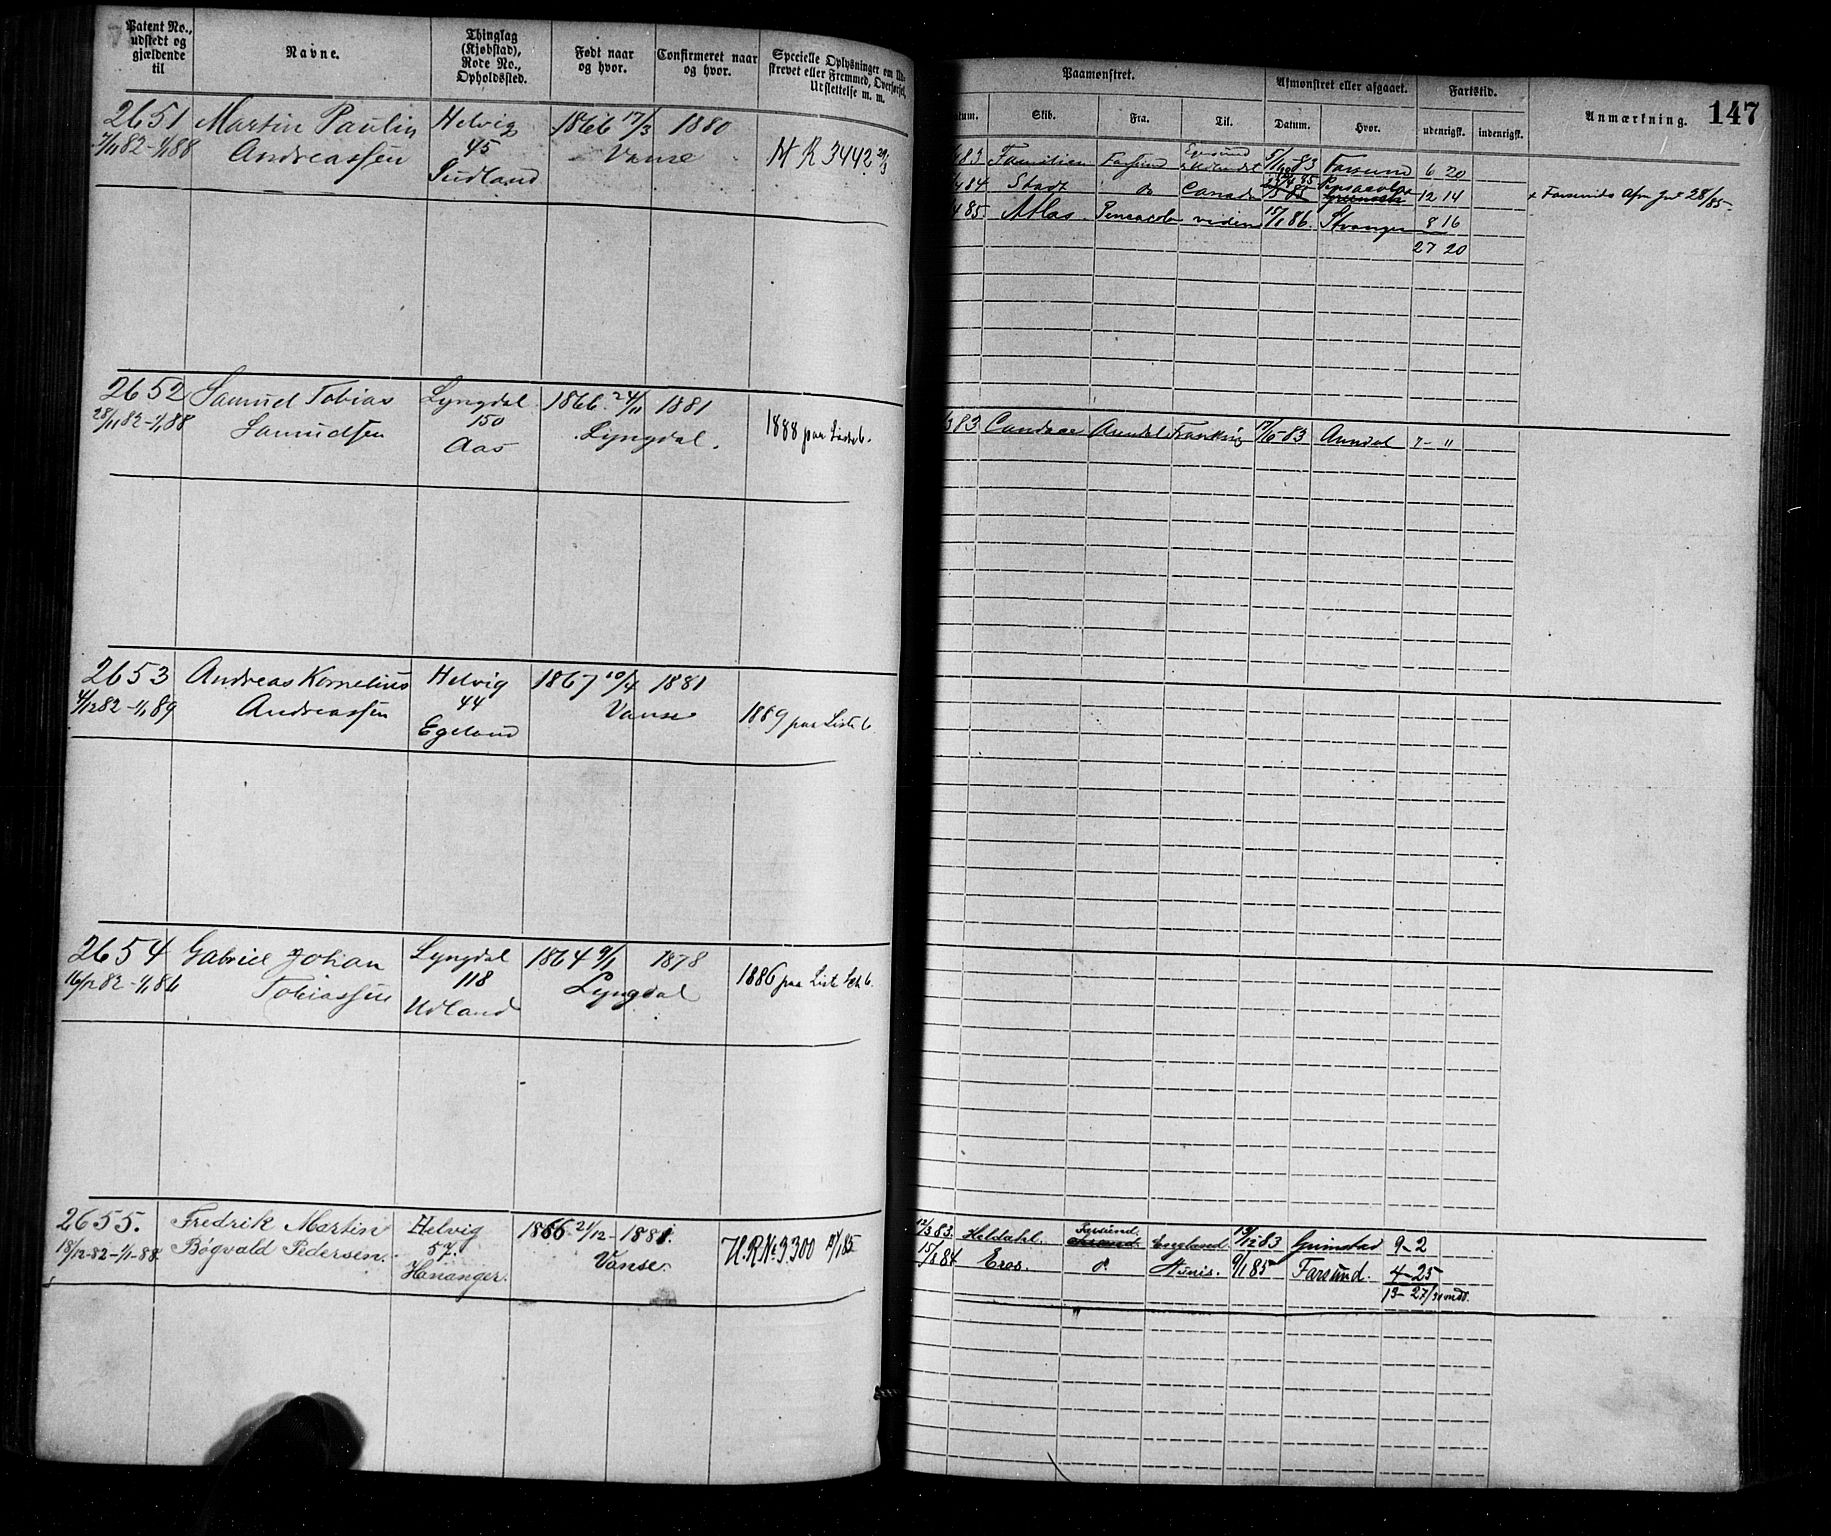 Patent No., udstedt og gjældende til
Navne.
Thinglag (Kjøbstad), Rode No., Opholdssted.
Født naar og hvor.
Confirmeret naar og hvor.
Specielle Oplysninger om Ud-
skrevet eller Fremmed, Overførsel,
Udslettelse m. m.
2651 Martin Paulin Helvig 1866 17/3 1880
7/11 82-1/1 88 Andreassen 45 Vanse H R 3442
Judland
2652 Samuel Tobias Lyngdal 1866 24/11 1881
28/11 82-1/1 88 Samuelsen 150 Lyngdal. 1888 paa Liste b.
Aas
2653 Andreas Kornelius Helvig 1867 10/4 1881
4/12 82-1/1 89 Andreassen 44 Vanse 1889 paa Liste b
Egeland
2654 Gabriel Johan Lyngdal 1864 9/1 1878
16/12 82-1/1 86 Tobiassen 118 Lyngdal 1886 paa Liste b.
Udland
2655. Fredrik Martin Helvig 1866 21/12 - 1881.
18/12-82-1/1-88. Bøgvald Pedersen. 57. Vanse. H.R.No 3300
Hananger.
147
Paamønstret.
Afmønstret eller afgaaet.
Fartstid.
Anmærkning.
Datum. Skib. Fra. Til. Datum. Hvor. udenrigsk. indenrigsk.
83 Familien Farsund Egersund & Udlandet 83 Farsund 6 20
84 Stadt do Canada 85 Pensacola 12 14 28/85
85 Atlas Pensacola viden 15/1 86. Stvanger 8 16
27 20
83 Candace Arendal Frankrig 17/10-83 Arendal 7 - "
12/3 83. Heldahl. Farsund England 83 Grimstad 9-2
15/8 84 Eros. do. Tunis. 9/1 85 Farsund. 4-25
13-27